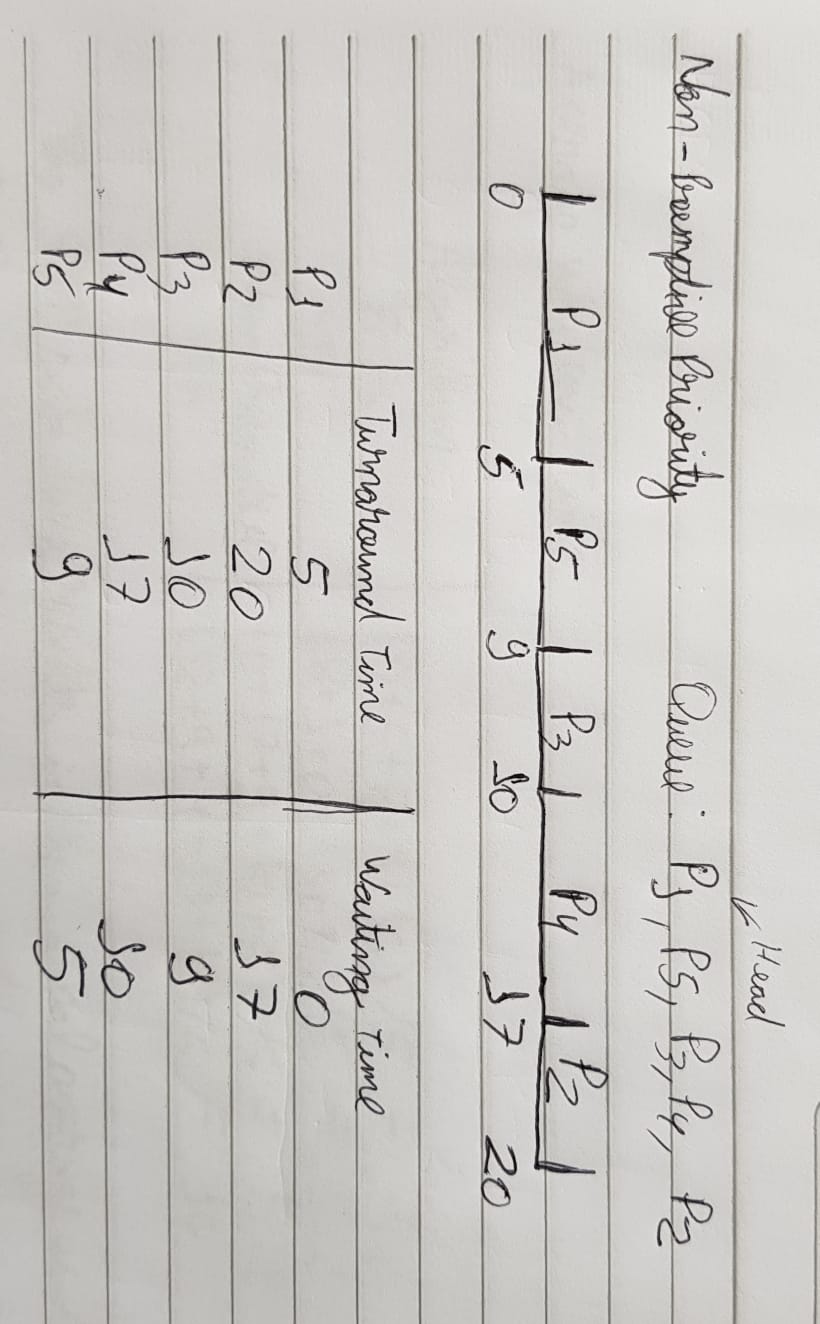 Head
Non-Preemptive Priority Queue: P1, P5, P3, P4, P2
P1 P5 P3 P4 P2
0 5 9 10 17 20
Turnaround Time Waiting Time
P1 5 0
P2 20 17
P3 10 9
P4 17 10
P5 9 5